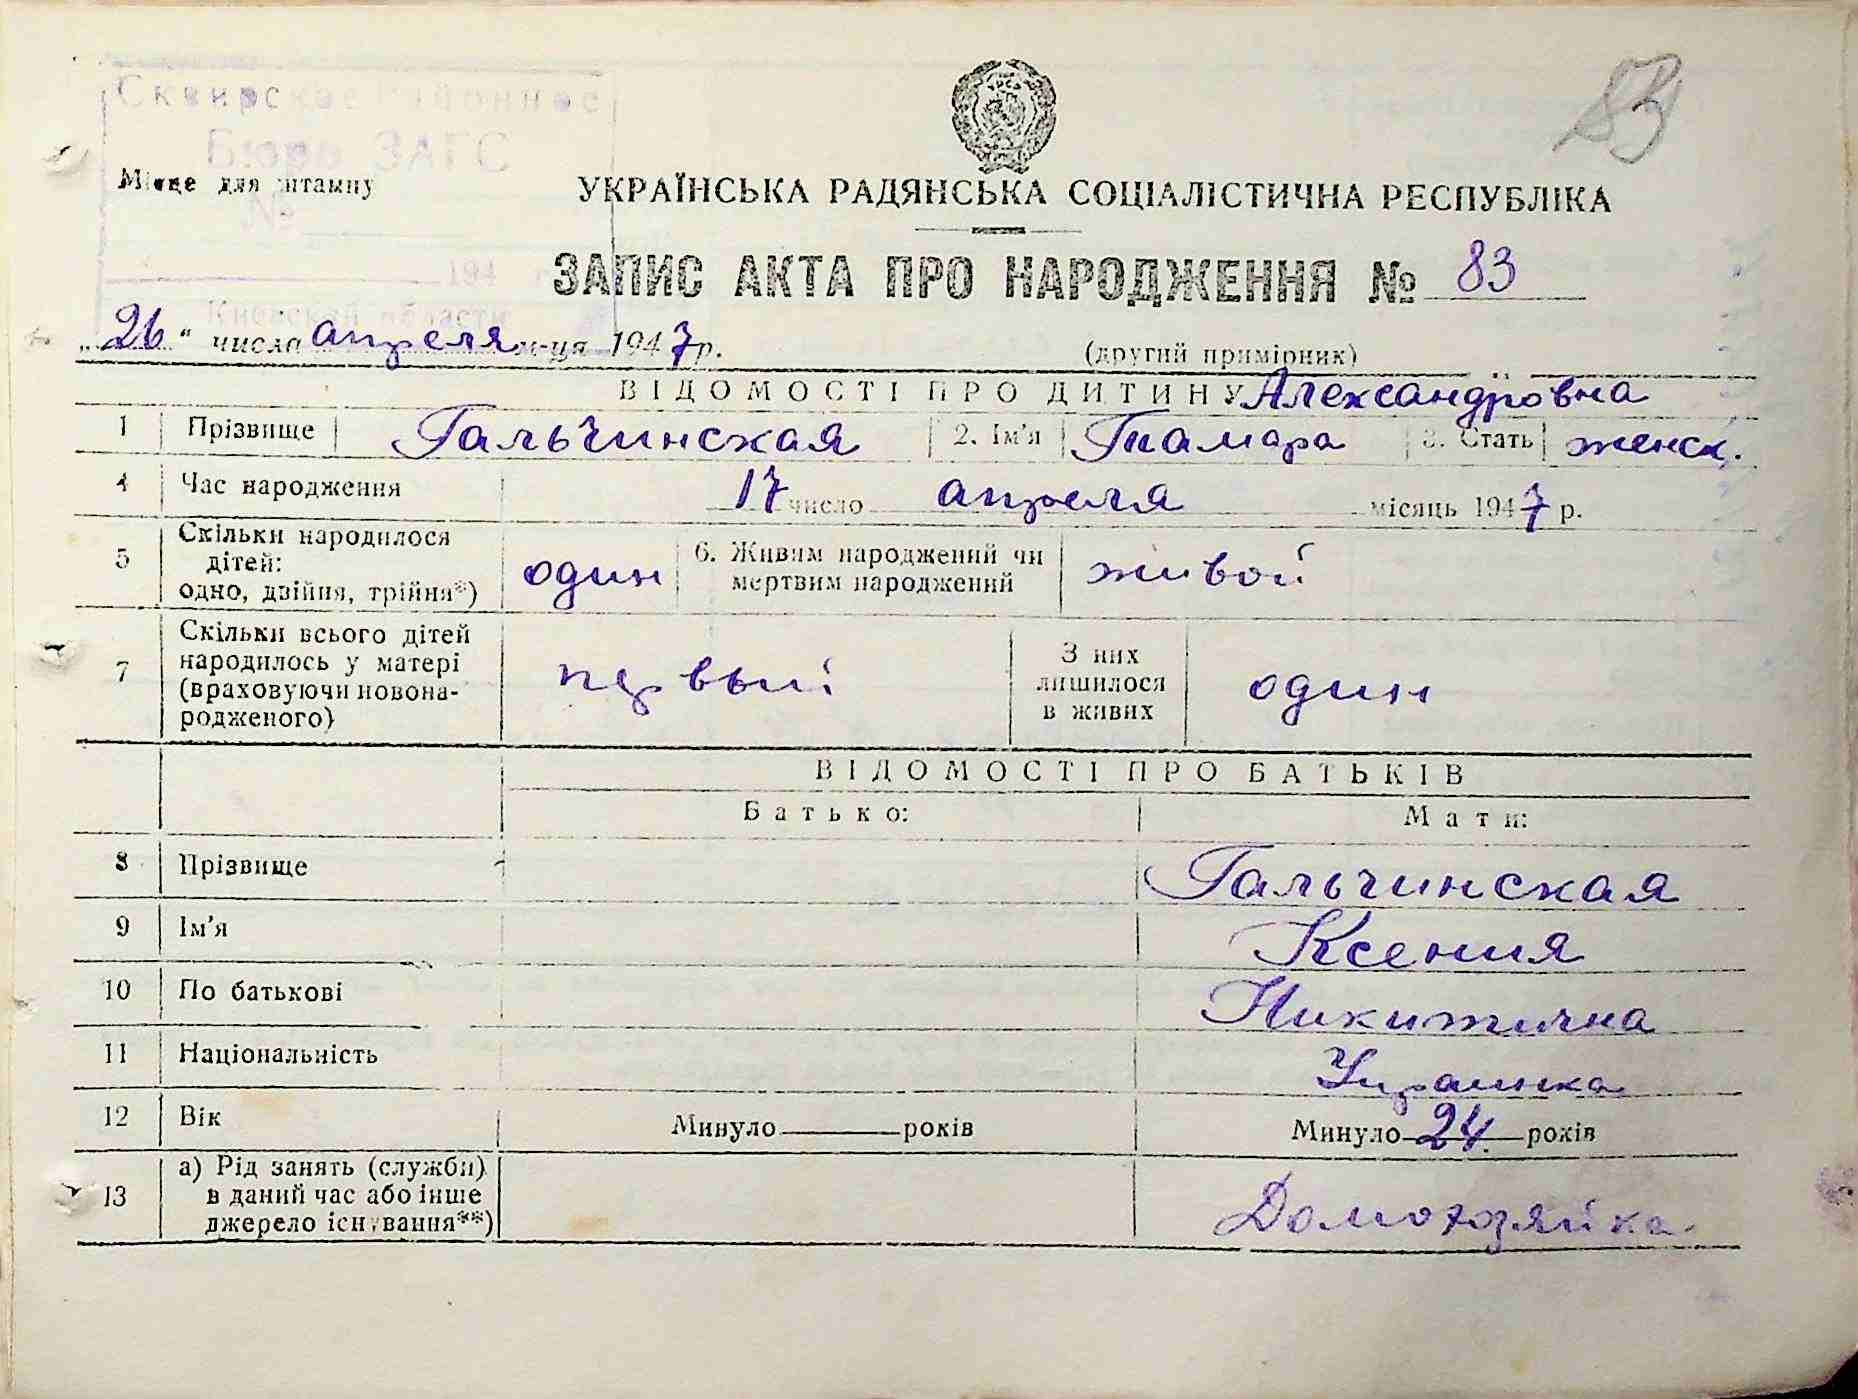 83
Сквирское Районное
Бюро ЗАГС
Місце для штампу
№
194
Киевской области
УКРАЇНСЬКА РАДЯНСЬКА СОЦІАЛІСТИЧНА РЕСПУБЛІКА
ЗАПИС АКТА ПРО НАРОДЖЕННЯ № 83
„26“ числа апреля м-ця 1947 р.
(другий примірник)
ВІДОМОСТІ ПРО ДИТИНУ Александровна
1 Прізвище Гальчинская 2. Ім'я Тамара 3. Стать женск.
4 Час народження 17 число апреля місяць 1947 р.
5 Скільки народилося дітей: одно, двійня, трійня*) один 6. Живим народжений чи мертвим народжений живой
7 Скільки всього дітей народилось у матері (враховуючи новонародженого) первый З них лишилося в живих один
ВІДОМОСТІ ПРО БАТЬКІВ
Батько: Мати:
8 Прізвище Гальчинская
9 Ім'я Ксения
10 По батькові Никитична
11 Національність Украинка
12 Вік Минуло років Минуло 24 років
13 а) Рід занять (служби) в даний час або інше джерело існування**) Домохозяйка